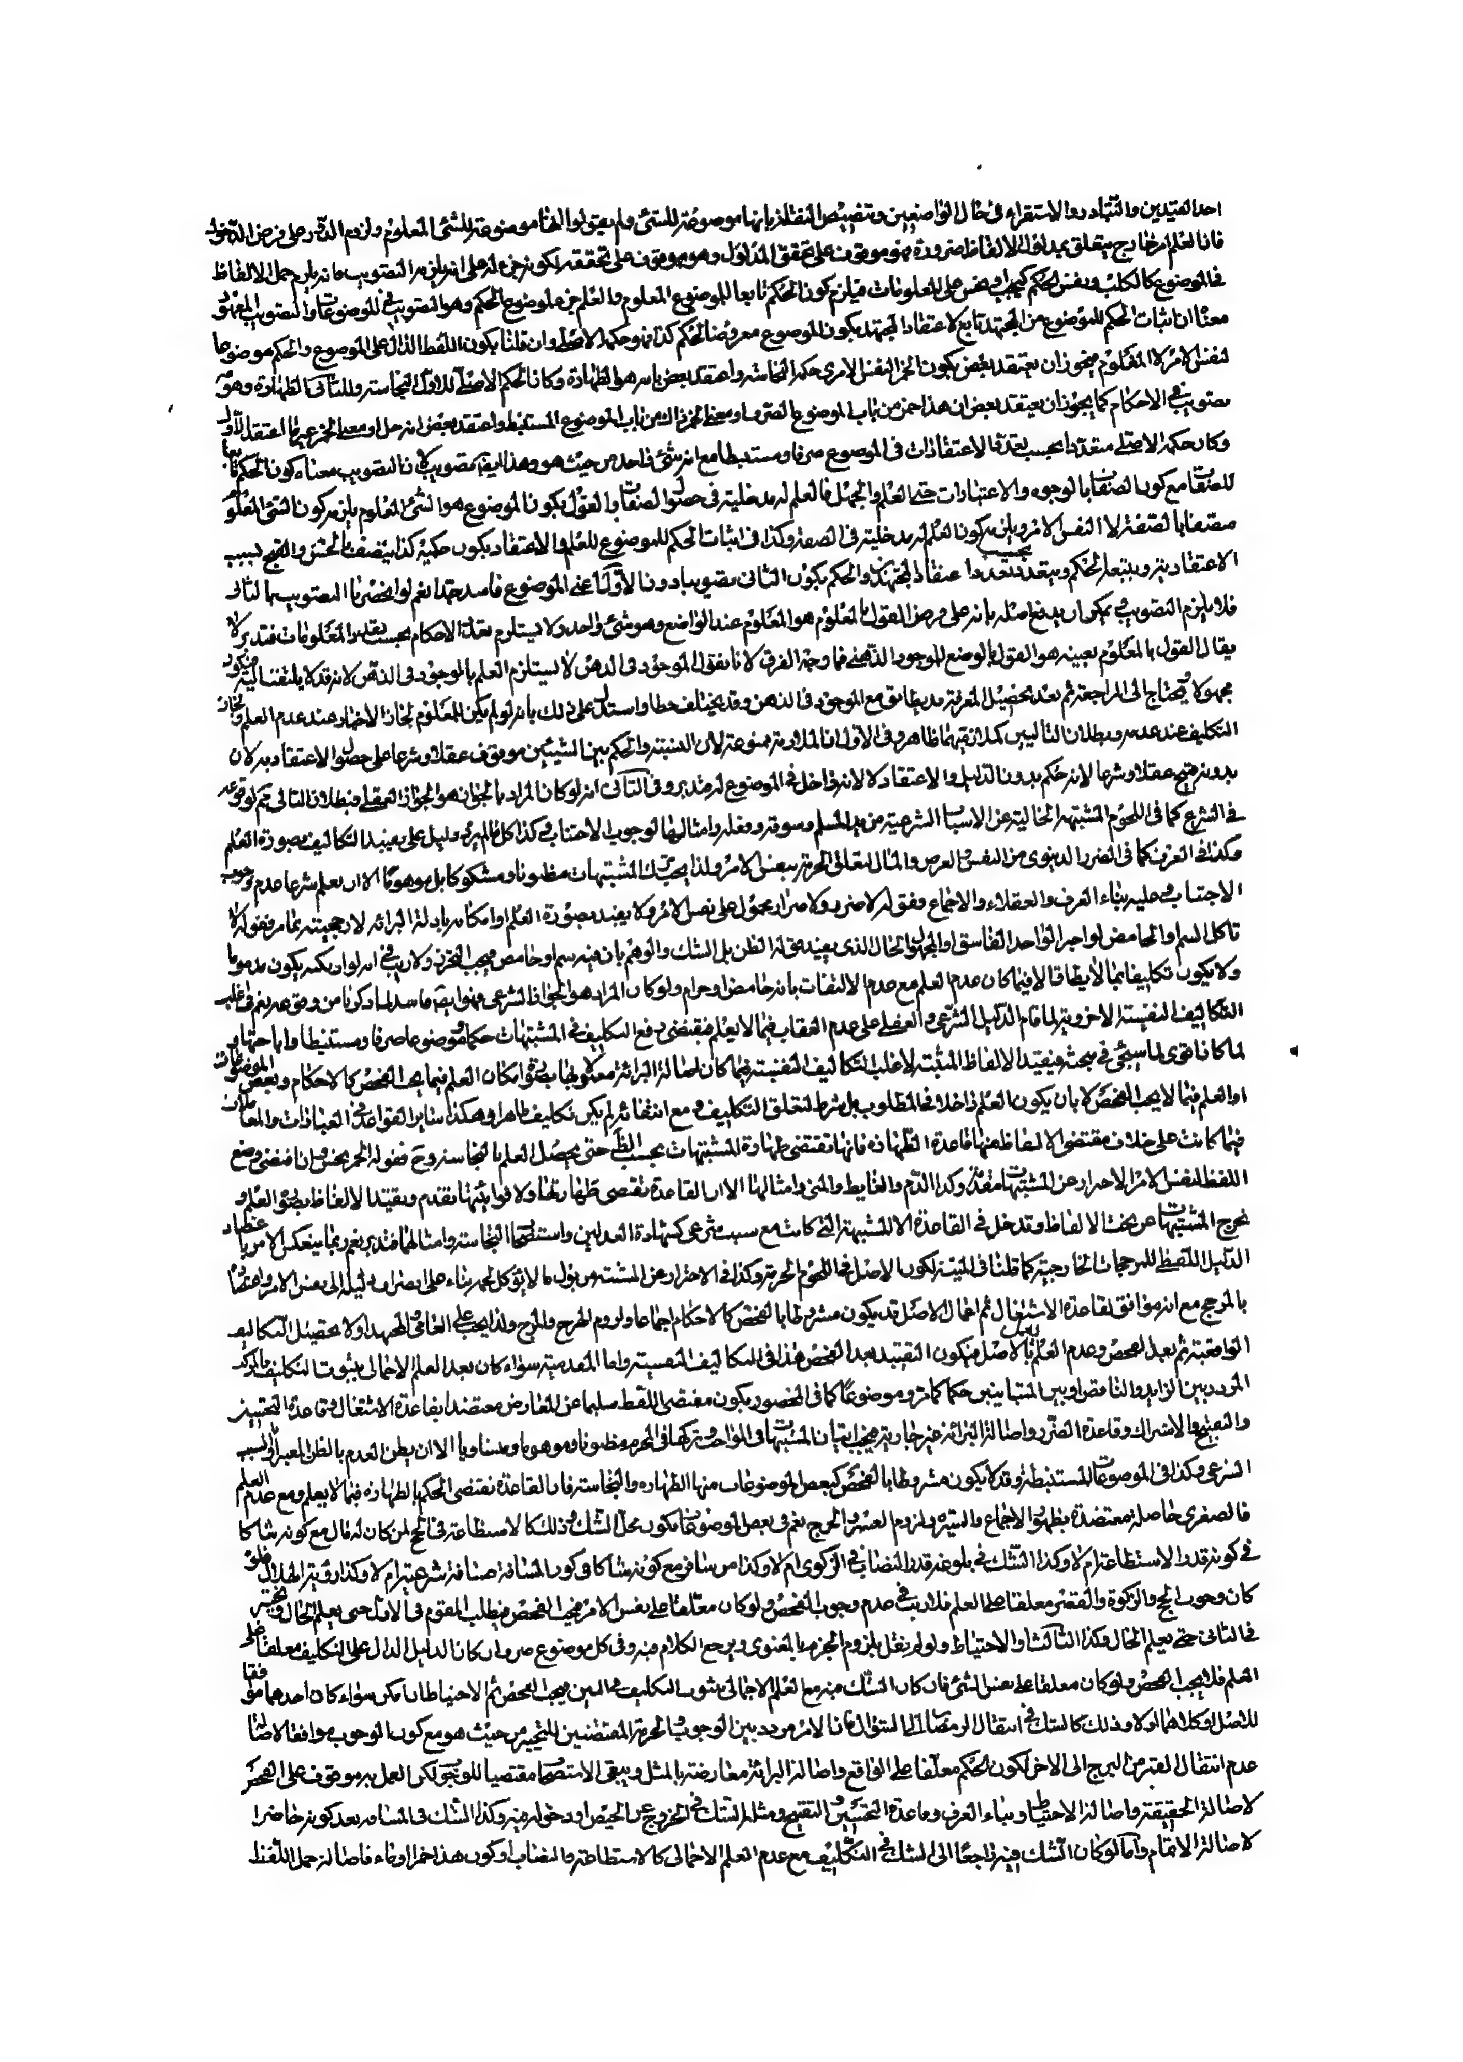 احد القيدين والتبادر والاستقراء فى حال الواضعين وتنصيص النقلة بانها موضوعة للشئ ولم يقولوا انها موضوعة للشئ المعلوم ولزوم الدور على فرض الدخول
فان العلم امر خارج يتعلق بمداول الالفاظ ضرورة فهو موقوف على تحقق المدلول وهو موقوف على تحققه لكونه جزء له على انه يلزم التصويب فانه يلزم حمل الالفاظ
فى الموضوع كالكلب ونفس الحكم كيجب ونجس على المعلومات فيلزم كون الحكم تابعا للموضوع المعلوم والعلم جزء لموضوع الحكم وهو التصويب فى الموضوعات والتصويب
معناه ان اثبات الحكم للموضوع من المجتهد تابع لاعتقاد المجتهد بكون الموضوع معروضا لحكم كذا فهو حكمه الاصلى وان قلنا بكون اللفظ الدال على الموضوع والحكم موضوعا
لنفس الامر لا المعلوم فيجوز ان يعتقد بعض بكون الخمر النفس الامرى حكمه النجاسة واعتقد بعض بانه هو الطهارة وكان الحكم الاصلى للاول النجاسة وللثانى الطهارة وهو
تصويب فى الاحكام كما يجوز ان يعتقد بعض ان هذا خمر من باب الموضوع الصرف او معنى الخمر ذاك من باب الموضوع المستنبط واعتقد بعض انه خل او معنى الخمر غير ما اعتقد الاول
وكان حكمه الاصلى متعددا بحسب تعدد الاعتقادات فى الموضوع صرفا ومستنبطا مع انه شئ واحد من حيث هو وهذا ايضا تصويب لان التصويب معناه كون الحكم تابعا
للصفات مع كون الصفات بالوجوه والاعتبارات حتى العلم والجهل فالعلم له مدخلية فى حصول الصفات والقول بكون الموضوع هو الشئ المعلوم يلزمه كون الشئ المعلوم
متصفا بالصفة لا النفس الامر ويلزمه كون العلم له مدخلية فى الصفة وكذا فى اثبات الحكم للموضوع للعلم والاعتقاد بكون حكمه كذا يتصف بالحسن والقبح بسبب
الاعتقاد به ويتبعه الحكم ويتعدد بحسب تعدد اعتقاد المجتهدين والحكم بكون الثانى تصويبا دون الاول اعنى الموضوع فاسد جدا نعم لو انحصر التصويب بالثانى
فلا يلزم التصويب ويمكن ان يدفع اصله بانه على فرض القول بالمعلوم هو المعلوم عند الواضع وهو شئ واحد ولا يستلزم تعدد الاحكام بحسب تعدد المعلومات فتدبر لا
يقال القول بالمعلوم بعينه هو القول بالوضع للموجود الذهنى فما وجه الفرق لانا نقول الموجود فى الذهن لا يستلزم العلم بالموجود فى الذهن لانه قد لا يلتفت اليه فيكون
مجهولا يحتاج الى المراجعة ثم بعد تحصيل المعرفة قد يطابق مع الموجود فى الذهن وقد يختلف خطا واستدل على ذلك بانه لو لم يكن للمعلوم لجاز الاخبار عند عدم العلم ولجاز
التكليف عند عدمه وبطلان التاليين كملازمتهما ظاهر وفى الاول ان الملازمة ممنوعة لان النسبة والحكم بين الشيئين موقوف عقلا وشرعا على حصول الاعتقاد به لان
بدونه قبيح عقلا وشرعا لانه حكم بدون الدليل والاعتقاد لا لانه داخل فى الموضوع له فتدبر وفى الثانى انه لو كان المراد بالجواز هو الجواز العقلى فبطلان التالى ثم لوقوعه
فى الشرع كما فى اللحوم المشتبهة الخالية عن الاسباب الشرعية من يد المسلم وسوقه وفعله وامثالها لوجوب الاجتناب فى كذا كل ما لم يرد دليل على تقييد التكاليف بصورة العلم
وكذا فى العرف كما فى الضرر الدنيوى من النفس والعرض والمال لتعلق الحرمة بنفس الامر ولذا يجب ترك المشتبهات مظنونا ومشكوكا بل موهوما الا ان يعلم شرعا عدم وجوب
الاجتناب وعليه بناء العرف والعقلاء والاجماع وقوله لا ضرر ولا ضرار محمول على نفس الامر ولا يقيد بصورة العلم او امكانه بادلة البرائة لارجحيته بما مر وقوله لا
تاكل السم والحامض لو اخبر الواحد الفاسق او المجهول الحال الذى يفيد قوله الظن بل الشك والوهم بان فيه سم او حامض فيجب التحرز ولا ريب فى انه لو ارتكبه يكون مذموما
ولا يكون تكليفا بما لا يطاق الا فيما كان عدم العلم مع عدم الالتفات بانه حامض او حرام ولو كان المراد هو الجواز الشرعى فهو ايضا فاسد لما ذكرنا من وقوعه نعم فى اغلب
التكاليف النفسية الاخروية لما قام الدليل الشرعى والعقلى على عدم العقاب فيما لا يعلم فمقتضى رفع التكليف فى المشتبهات حكما وموضوعا صرفا ومستنبطا واباحتها
لما كان اقوى لما سيجئ فى مبحثه فيقيد الالفاظ المثبتة لاغلب التكاليف النفسية فيما كان اصالة البرائة معمولا بها بصورة امكان العلم فيما يجب الفحص كالاحكام وبعض الموضوعات
او العلم فيما لا يجب الفحص لا بان يكون العلم داخلا فى المطلوب بل شرط لتعلق التكليف ومع انتفائه لم يكن تكليف ظاهرا وهكذا ساير القواعد فى العبادات والمعاملات
فيما كانت على خلاف مقتضى الالفاظ منها قاعدة الطهارة فانها تقتضى طهارة المشتبهات بحسب الظاهر حتى يحصل العلم بالنجاسة وح فقوله الخمر نجس وان اقتضى وضع
اللفظ لنفس الامر الاحتراز عن المشتبهات مقدمة وكذا الدم والغايط والمنى وامثالها الا ان القاعدة تقتضى طهارتها ولاقوائيتها تقدم وتقيد الالفاظ بصورة العلم و
تخرج المشتبهات عن تحت الالفاظ وتدخل فى القاعدة الا المشتبهة التى كانت مع سبب شرعى كشهادة العدلين واستصحاب النجاسة وامثالها فتدبر نعم ربما ينعكس الامر باعتضاد
الدليل اللفظى للمرجحات الخارجية كما قلنا فى الميتة لكون الاصل فى اللحوم الحرمة وكذا فى الاحتراز عن المشتبه من بول ما لا يؤكل لحمه بناء على انصراف دليله الى نفس الامر واعتضاده
بالمرجح مع انه موافق لقاعدة الاشتغال ثم اعمال الاصل قد يكون مشروطا بالفحص كالاحكام اجماعا ولزوم الهرج والمرج ولذا يجب على العامى المجتهد اولا تحصيل التكاليف
الواقعية ثم بعد الفحص وعدم العلم يعمل بالاصل فيكون التقييد بعد الفحص هذا فى التكاليف النفسية واما المقدمية سواء كان بعد العلم الاجمالى بثبوت التكليف
المردد بين الزايد والناقص او بين المتباينين حكما كما مر وموضوعا كما فى المحصور يكون مقتضى اللفظ سليما عن المعارض معتضدا بقاعدة الاشتغال وقاعدة التحسين
والتقبيح والاشتراك وقاعدة الضرر واصالة البرائة غير جارية فيجب اتيان المشتبهات فى الواجب وتركها فى الحرمة مظنونا وموهوما ومتساويا الا ان يظن العدم بالظن المعتبر او السبب
الشرعى وكذا فى الموضوعات المستنبطة وقد لا يكون مشروطا بالفحص كبعض الموضوعات منها الطهارة والنجاسة فان القاعدة تقتضى الحكم بالطهارة فيما لا يعلم ومع عدم العلم
فالصغرى حاصلة معتضدة بظهور الاجماع والسيرة ولزوم العسر والحرج نعم فى بعض الموضوعات يكون محل الشك وذلك كالاستطاعة فى الحج لمن كان له مال مع كونه شاكا
فى كونه قدر الاستطاعة ام لا وكذا الشك فى بلوغه قدر النصاب فى الزكوة ام لا وكذا من سافر مع كونه شاكا فى كون المسافة مسافة شرعية ام لا وكذا رؤية الهلال فلو
كان وجوب الحج والزكوة والقصر معلقا على العلم فلا ريب فى عدم وجوب الفحص ولو كان معلقا على نفس الامر فيجب الفحص فيطلب المقوم فى الاول حتى يعلم الحال ويختبر
فى الثانى حتى يعلم الحال وكذا الثالث والاحتياط ولو لم نقل بلزوم الجزم بالفتوى ويرجع الكلام فيه وفى كل موضوع صرف ان كان الدليل الدال على التكليف معلقا على
العلم فلا يجب الفحص ولو كان معلقا على نفس الشئ فان كان الشك فيه مع العلم الاجمالى بثبوت التكليف فيجب الفحص ثم الاحتياط ان امكن سواء كان احدهما موافقا
للاصل او كلاهما اولا وذلك كالشك فى انتقال الرمضان الى الشوال فان الامر مردد بين الوجوب والحرمة المقتضيين للتخيير من حيث هو مع كون الوجوب موافقا لاصالة
عدم انتقال القمر من البرج الى الاخر لكون الحكم معلقا على الواقع واصالة البرائة معارضة بالمثل ويبقى الاستصحاب مقتضيا للوجوب لكن العمل به موقوف على الفحص
لاصالة الحقيقة واصالة الاحتياط وبناء العرف وقاعدة التحسين والتقبيح ومثله الشك فى الخروج عن الحيض او دخوله فيه وكذا الشك فى المسافة بعد كونه حاضرا
لاصالة الاتمام واما لو كان الشك فيه راجعا الى الشك فى التكليف مع عدم العلم الاجمالى كالاستطاعة والنصاب او كون هذا خمرا او ماء فاصالة حمل اللفظ